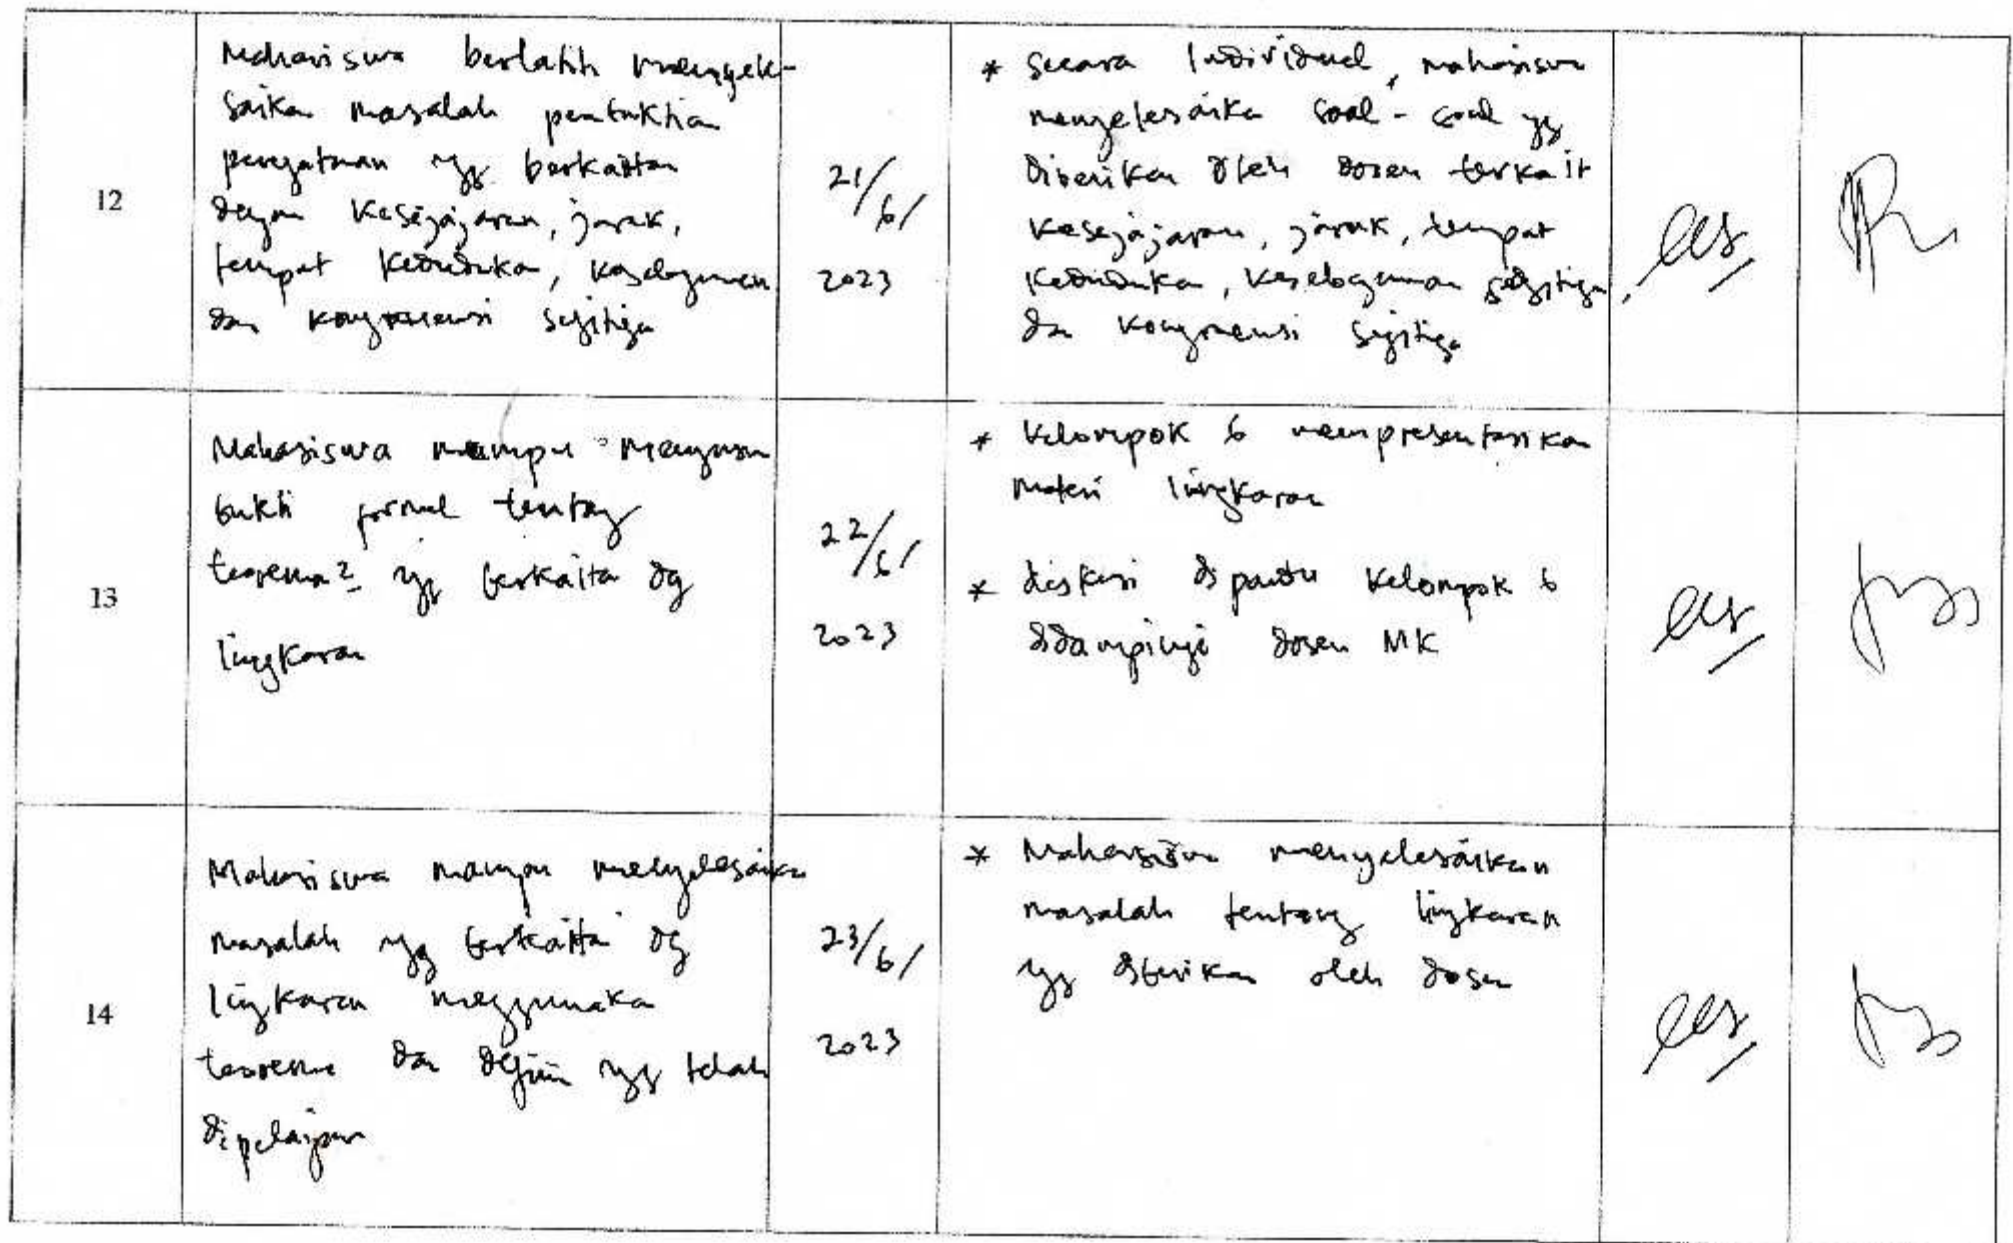 12
Mahasiswa berlatih menyele-
saika masalah pembuktian
pernyataan yg berkaitan
dengan kesejajaran, jarak,
tempat kedudukan, kesebangunan
dan kongruensi segitiga
21/6/
2023
* Secara Individual, mahasiswa
menyelesaika soal - soal yg
diberikan oleh dosen terkait
kesejajaran, jarak, tempat
kedudukan, kesebangunan segitiga,
dan kongruensi segitiga
13
Mahasiswa mampu menyusun
bukti formal tentang
teorema2 yg berkaitan dg
lingkaran
22/6/
2023
* Kelompok 6 mempresentasikan
materi lingkaran
* diskusi dipandu kelompok 6
didampingi dosen MK
14
Mahasiswa mampu menyelesaika
masalah yg berkaitan dg
lingkaran menggunaka
teorema dan definisi yg telah
dipelajari
23/6/
2023
* Mahasiswa menyelesaikan
masalah tentang lingkaran
yg diberikan oleh dosen